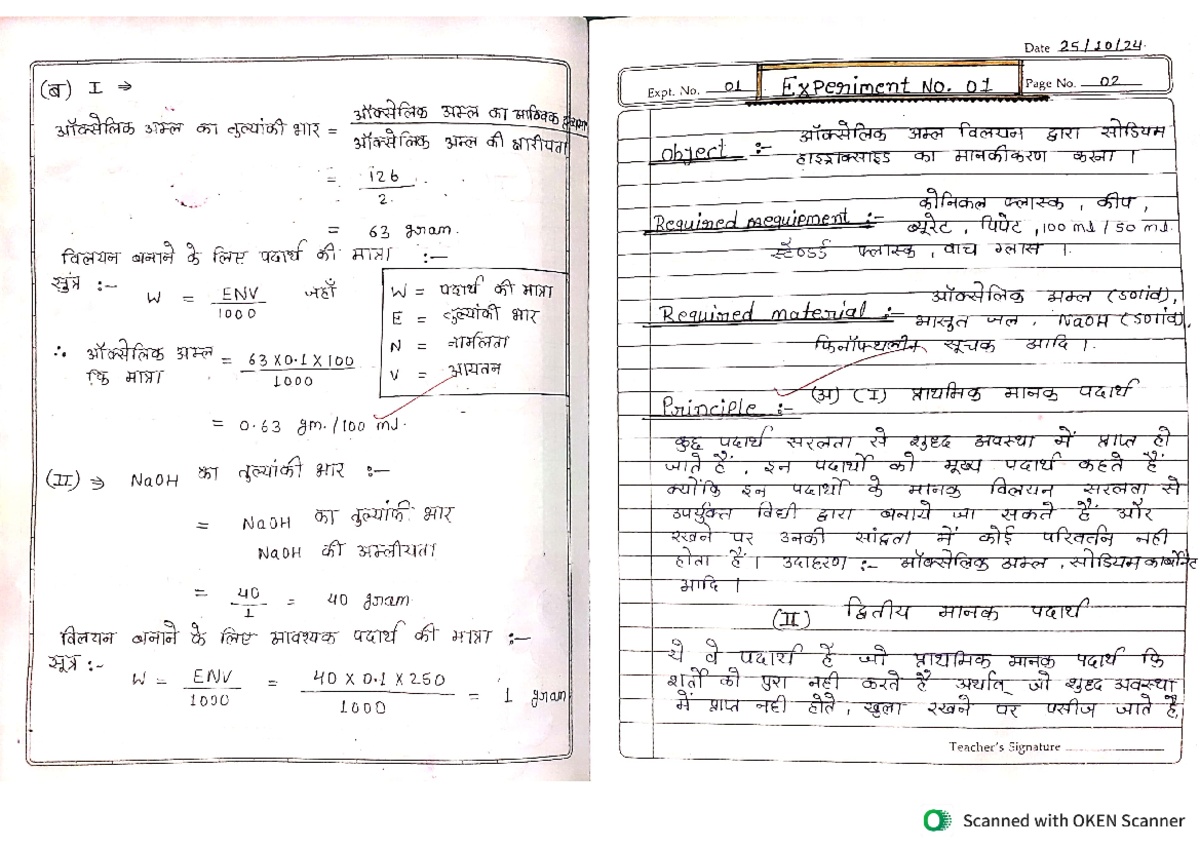 (ब) I ⇒
ऑक्सेलिक अम्ल का तुल्यांकी भार = ऑक्सेलिक अम्ल का आण्विक
ऑक्सेलिक अम्ल की क्षारीयता
= 126
2.
= 63 gram.
विलयन बनाने के लिए पदार्थ की मात्रा :—
सुत्र :- W = ENV जहाँ
1000
W = पदार्थ की मात्रा
E = तुल्यांकी भार
N = नार्मलता
V = आयतन
∴ ऑक्सेलिक अम्ल = 63 X 0.1 X 100
कि मात्रा 1000
= 0.63 gm. / 100 ml.
(II) ⇒ NaOH का तुल्यांकी भार :—
= NaOH का तुल्यांकी भार
NaOH की अम्लीयता
= 40 = 40 gram.
1
विलयन बनाने के लिए आवश्यक पदार्थ की मात्रा :—
सूत्र :-
W = ENV = 40 X 0.1 X 250 = 1 gram
1000 1000
Date 25/10/24.
Expt. No. 01 Experiment No. 01 Page No. 02
object :- ऑक्सेलिक अम्ल विलयन द्वारा सोडियम
हाइड्राक्साइड का मानकीकरण करना ।
Required mequiement :- कोनिकल फ्लास्क , कीप ,
ब्यूरेट , पिपेट , 100 ml / 50 ml.
स्टैण्डर्ड फ्लास्क , वाच ग्लास ।
Required material :- ऑक्सेलिक अम्ल (ठोस),
आसुत जल , NaOH (ठोस),
फिनॉफ्थलीन सूचक आदि ।
Principle :- (अ) (I) प्राथमिक मानक पदार्थ
कुछ पदार्थ सरलता से शुध्द अवस्था में प्राप्त हो
जाते हैं , इन पदार्थो को मूख्य पदार्थ कहते हैं
क्योंकि इन पदार्थो के मानक विलयन सरलता से
उपर्युक्त विधी द्वारा बनाये जा सकते हैं और
रखने पर उनकी सांद्रता में कोई परिवर्तन नही
होता हैं । उदाहरण :- ऑक्सेलिक अम्ल , सोडियम कार्बोनेट
आदि ।
(II) द्वितीय मानक पदार्थ
ये वे पदार्थ हैं जो प्राथमिक मानक पदार्थ कि
शर्तो को पुरा नही करते हैं अर्थात् जो शुध्द अवस्था
में प्राप्त नही होते , खुला रखने पर पसीज जाते हैं,
Teacher's Signature
Scanned with OKEN Scanner